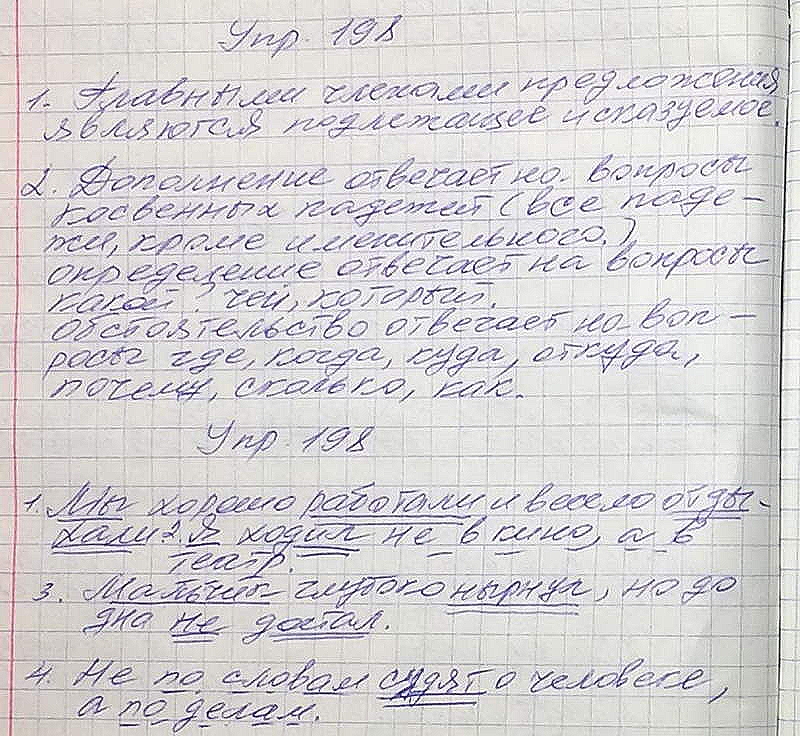 Упр. 198
1. Главными членами предложения
являются подлежащее и сказуемое.
2. Дополнение отвечает на вопросы
косвенных падежей (все паде-
жи, кроме именительного.)
определение отвечает на вопросы
какой? чей, который.
обстоятельство отвечает на воп-
росы где, когда, куда, откуда,
почему, сколько, как.
Упр. 198
1. Мы хорошо работали и весело отды-
хали. 2. Я ходил не в кино, а в
театр.
3. Мальчик глубоко нырнул, но до
дна не достал.
4. Не по словам судят о человеке,
а по делам.